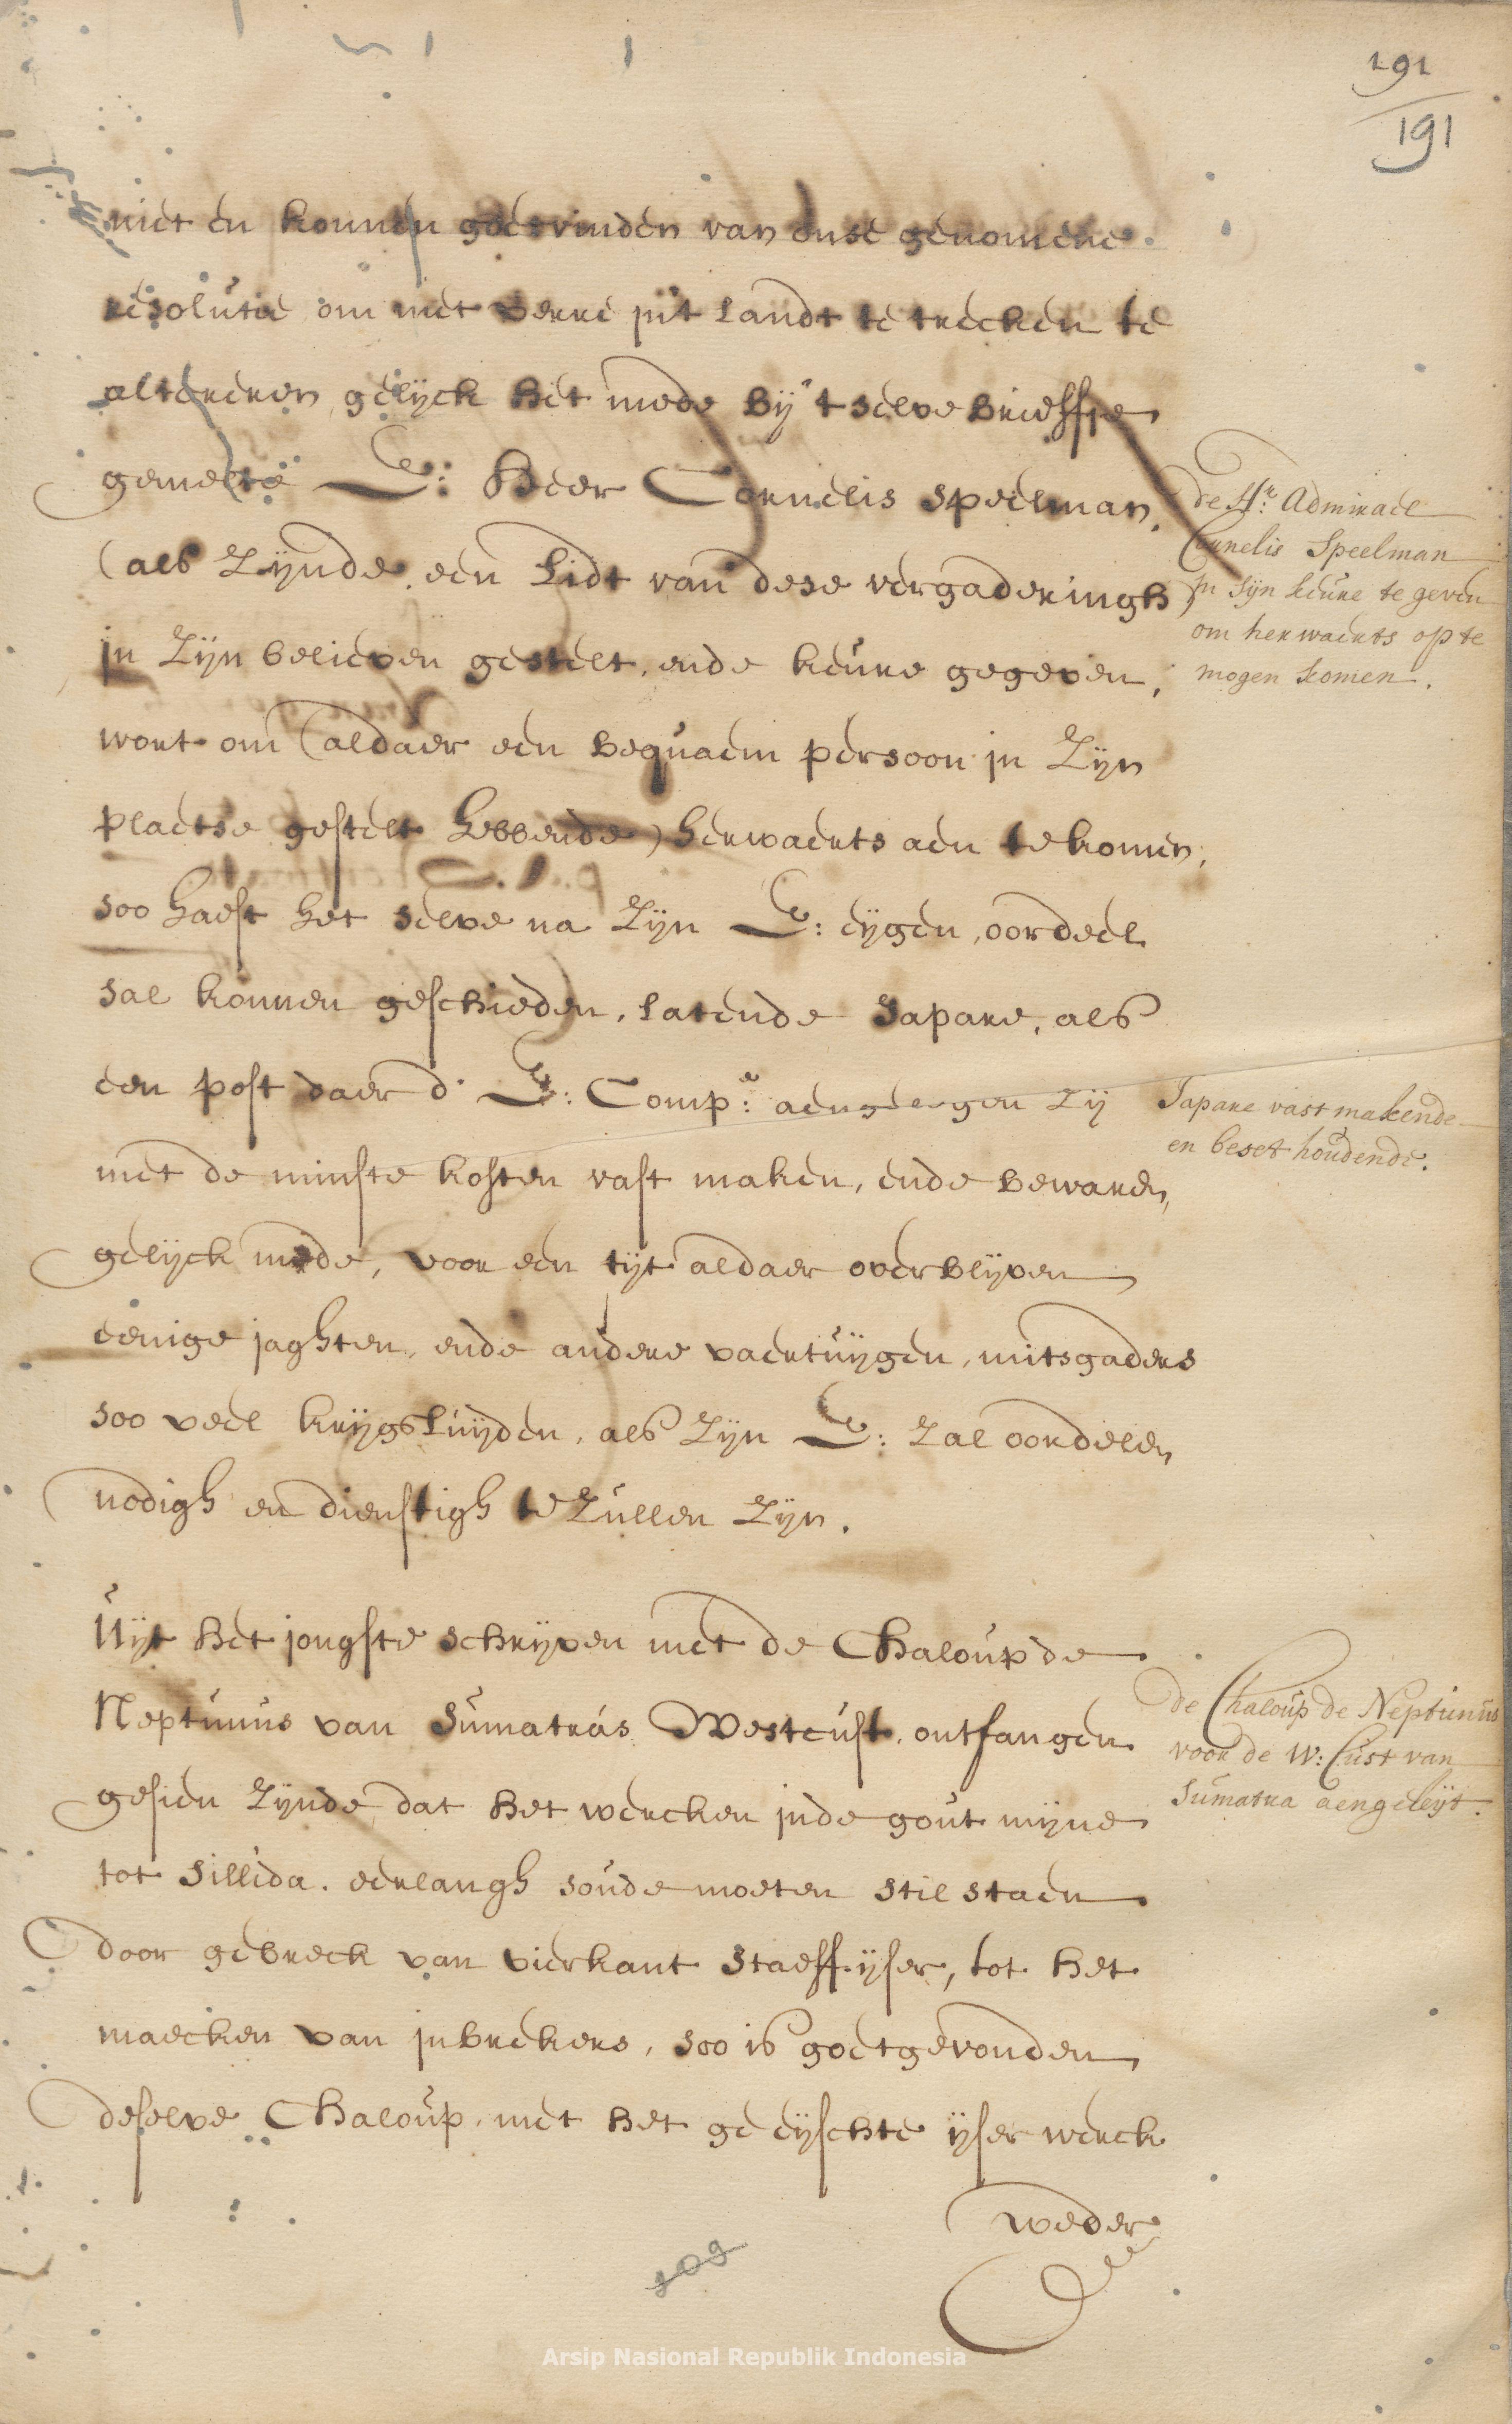 191
191
niet en konnen goetvinden van onse genomene
resolutie om niet verre jn't landt te trecken te
altereren, gelyck het mede by 't selve briefftie
gemelte E: Heer Cornelis Speelman,
(als Zynde een Lidt van dese vergaderingh)
jn Zyn believen gestelt, ende keure gegeven,
wort om (aldaer een bequaem persoon jn Zyn
plaetse gestelt hebbende) herwaerts aen te komen,
soo haest het selve na Zyn E: eygen, oordeel
sal konnen geschieden, latende Japare, als
een post daer d' E: Comp:e aengelegen Zy
met de minste kosten vast maken, ende bewaren,
gelyck mede, voor een tyt aldaer overblyven
eenige jaghten, ende andere vaertuygen, mitsgaders
soo veel krygsluyden, als Zyn E: Zal oordelen
nodigh en dienstigh te Zullen Zyn.
de H:r Admirael
Cornelis Speelman
jn syn keure te geven
om herwaerts op te
mogen komen.
Japare vast makende
en beset houdende.
Uyt het jongste schryven met de Chaloup de
Neptunus van Sumatras Westcust, ontfangen
gesien Zynde, dat het wercken jnde gout myne
tot Sillida. eerlangh soude moeten stil staen
door gebreck van vierkant staeff yser, tot het
maecken van jnbrekers, soo is goetgevonden
deselve Chaloup, met het geeyschte yser werck
weder
de Chaloup de Neptunus
voor de W: Cust van
Sumatra aengeleyt.
Arsip Nasional Republik Indonesia